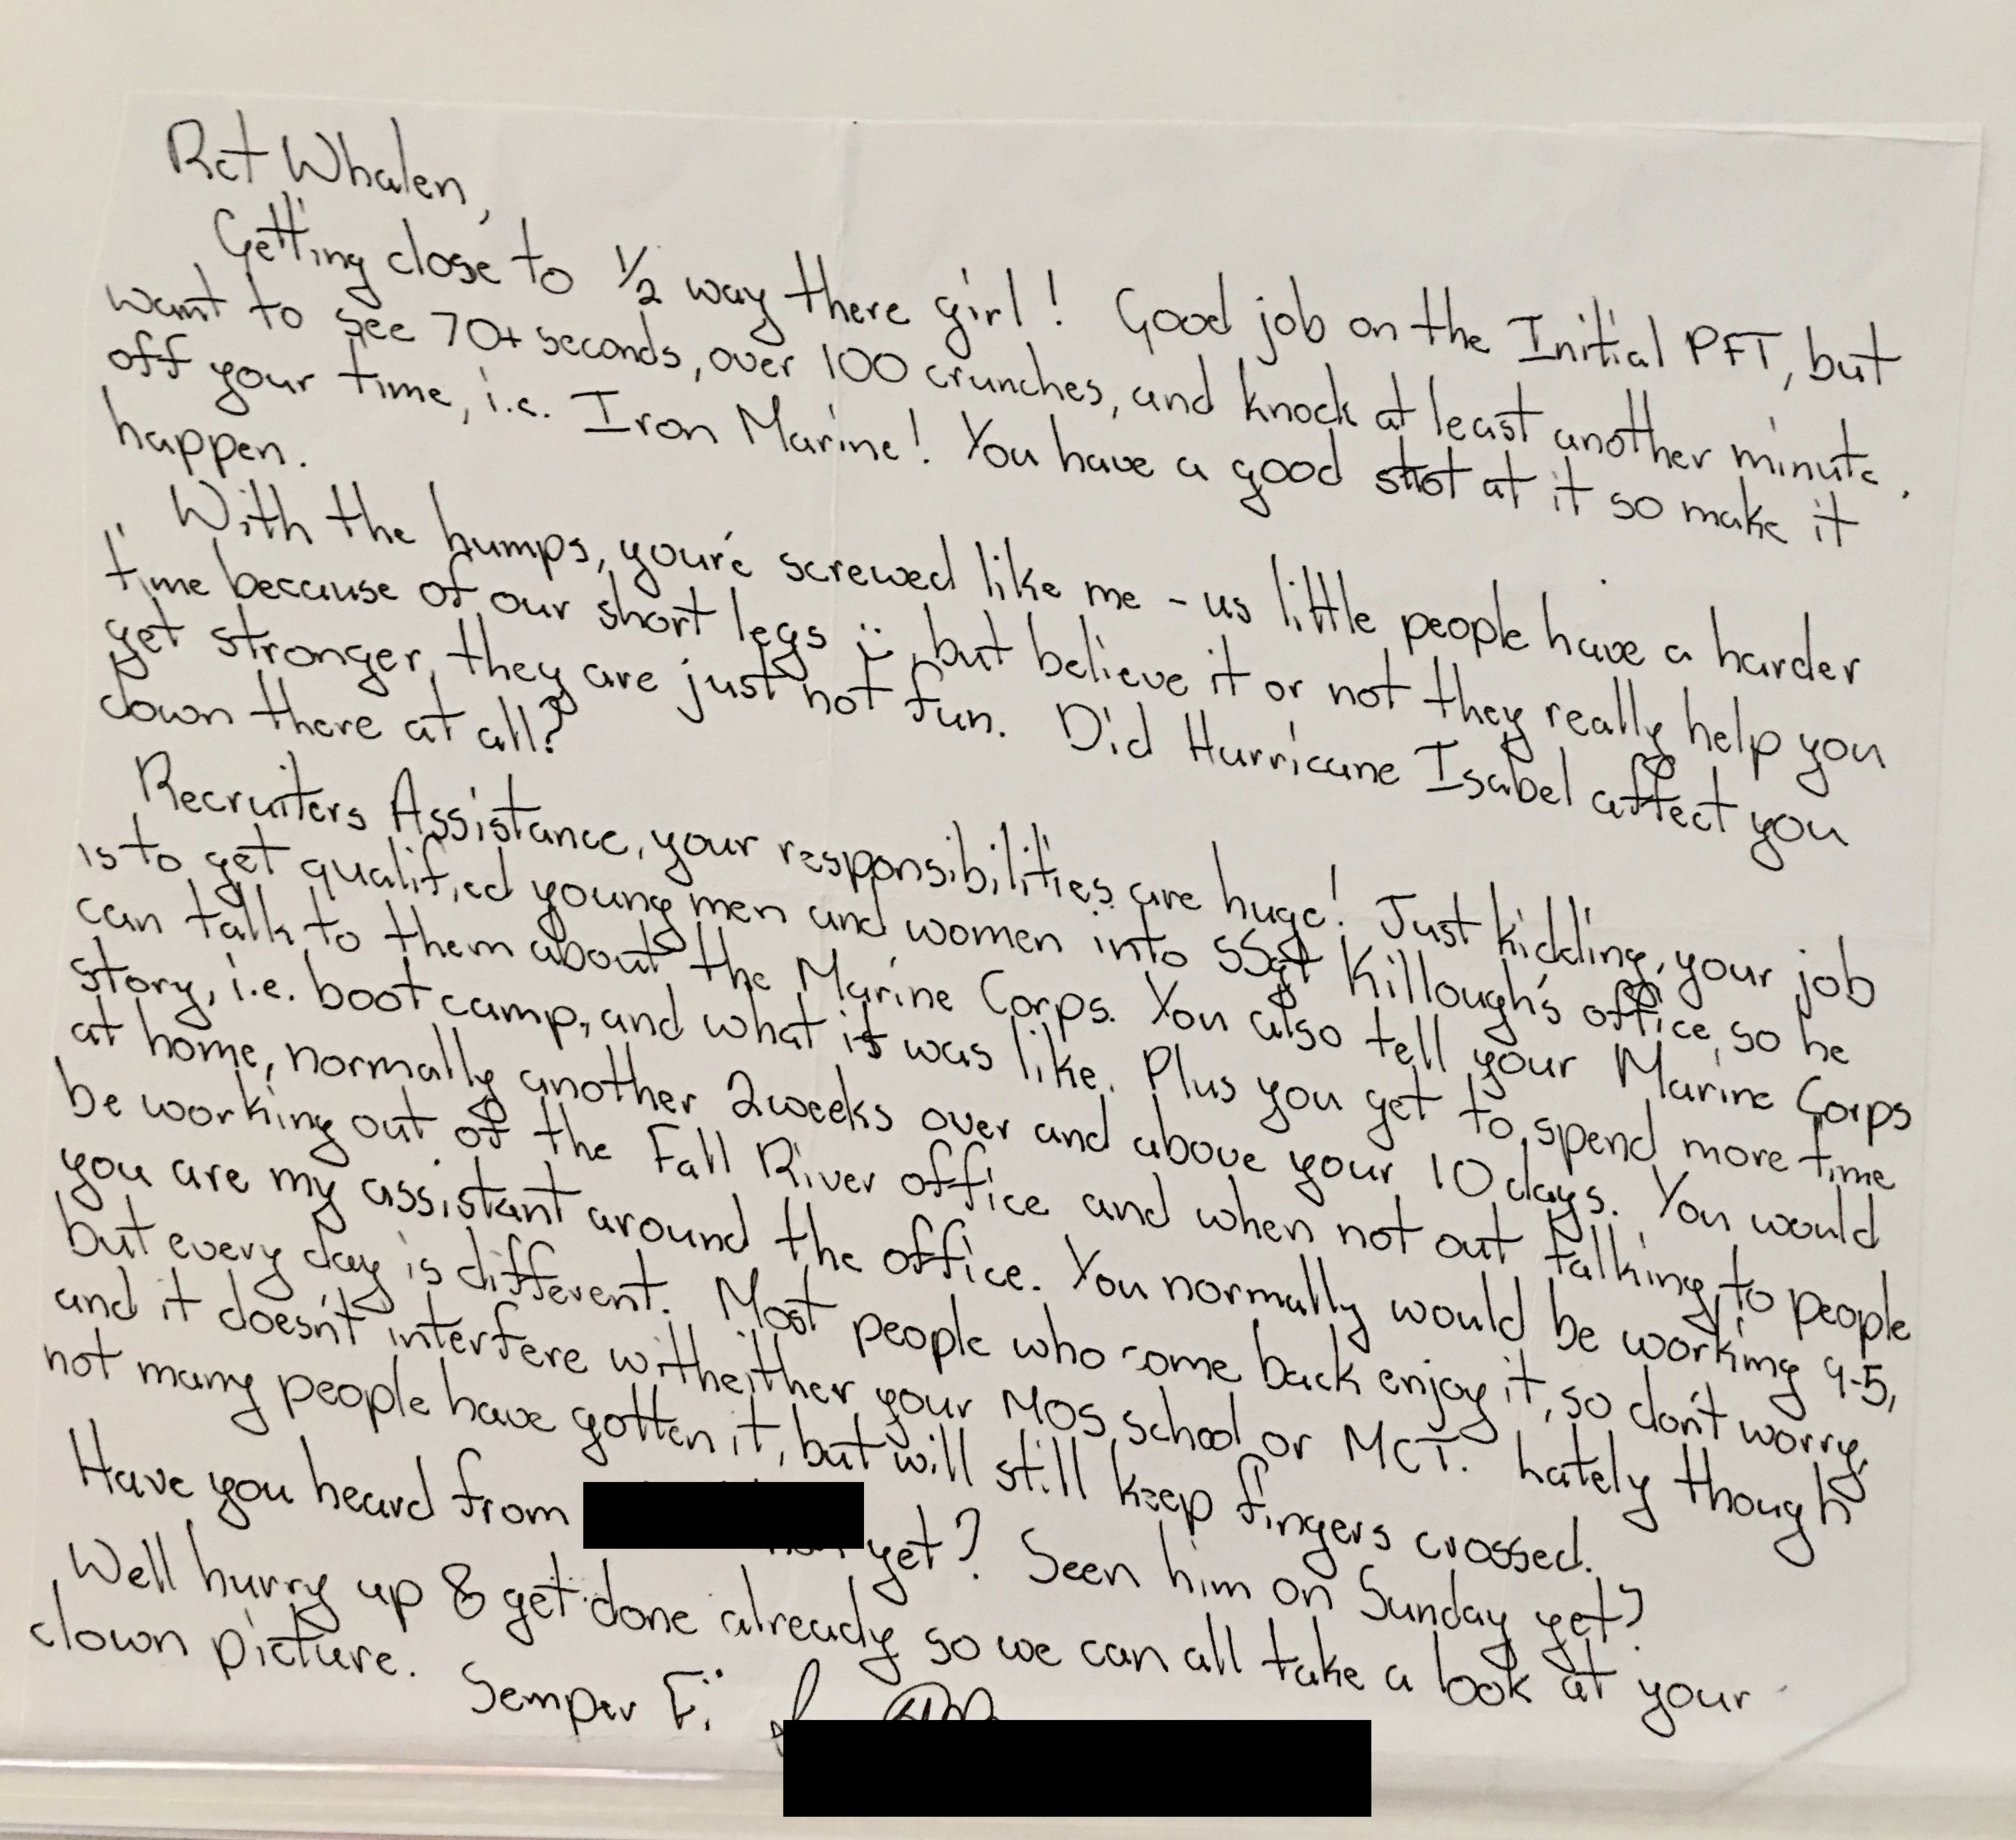 Rct Whalen,
Getting close to 1/2 way there girl! Good job on the Initial PFT, but
want to see 70+ seconds, over 100 crunches, and knock at least another minute
off your time, i.e. Iron Marine! You have a good shot at it so make it
happen.
With the humps, you're screwed like me - us little people have a harder
time because of our short legs :), but believe it or not they really help you
get stronger, they are just not fun. Did Hurricane Isabel affect you
down there at all?
Recruiters Assistance, your responsibilities are huge! Just kidding, your job
is to get qualified young men and women into SSgt Killough's office, so he
can talk to them about the Marine Corps. You also tell your Marine Corps
story, i.e. boot camp, and what it was like. Plus you get to spend more time
at home, normally another 2 weeks over and above your 10 days. You would
be working out of the Fall River office and when not out talking to people
you are my assistant around the office. You normally would be working 9-5,
but every day is different. Most people who come back enjoy it, so don't worry,
and it doesn't interfere with either your MOS school or MCT. Lately though
not many people have gotten it, but will still keep fingers crossed.
Have you heard from yet? Seen him on Sunday yet?
Well hurry up & get done already so we can all take a look at your
clown picture.
Semper Fi